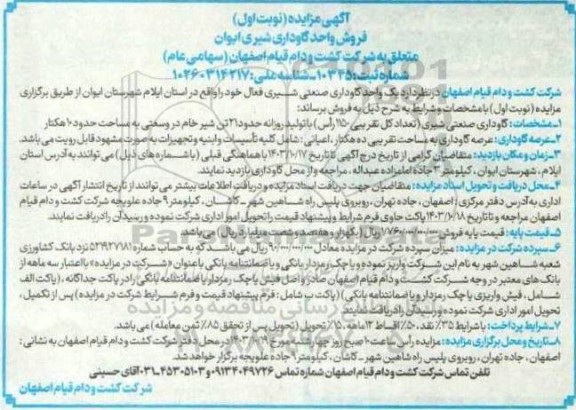 آگهی مزایده (نوبت اول)
فروش واحد گاوداری شیری ایوان
متعلق به شرکت کشت و دام قیام اصفهان (سهامی عام)
شماره ثبت: ۱۰۳۳۵ - شناسه ملی: ۱۰۲۶۰۳۱۴۲۱۷
شرکت کشت و دام قیام اصفهان در نظر دارد یک واحد گاوداری صنعتی شیری فعال خود را واقع در استان ایلام شهرستان ایوان از طریق برگزاری
مزایده (نوبت اول) با مشخصات و شرایط به شرح ذیل به فروش برساند:
۱- مشخصات: گاوداری صنعتی شیری (تعداد کل تقریبی ۱۱۵۰ رأس) با تولید روزانه حدود ۲۱ تن شیر خام در وسعتی به مساحت حدود ۱۰ هکتار
۲- عرصه گاوداری: عرصه گاوداری به مساحت تقریبی ده هکتار، اعیانی: شامل کلیه تأسیسات و ابنیه و تجهیزات به صورت مشهود قابل رویت می باشد.
۳- زمان و مکان بازدید: متقاضیان گرامی از تاریخ درج آگهی تا تاریخ ۱۴۰۳/۱۰/۱۷ با هماهنگی قبلی (با شماره های ذیل) می توانند به آدرس استان
ایلام، شهرستان ایوان، کیلومتر ۳ جاده امامزاده عبداله، مراجعه و از محل گاوداری بازدید نمایند.
۴- محل دریافت و تحویل اسناد مزایده: متقاضیان جهت دریافت اسناد مزایده و دریافت اطلاعات بیشتر می توانند از تاریخ انتشار آگهی در ساعات
اداری به آدرس دفتر مرکزی: اصفهان، جاده تهران، روبروی پلیس راه شاهین شهر - کاشان، کیلومتر ۹ جاده علویجه شرکت کشت و دام قیام
اصفهان مراجعه و تا تاریخ ۱۴۰۳/۱۰/۱۸ پاکت حاوی فرم شرایط و پیشنهاد قیمت را تحویل امور اداری شرکت نموده و رسید آن را دریافت نمایند.
۵- قیمت پایه: قیمت پایه فروش ریال (یکهزار و هفتصد و شصت میلیارد ریال) می باشد.
۶- سپرده شرکت در مزایده: میزان سپرده شرکت در مزایده معادل ریال می باشد که به حساب شماره ۵۲۱۹۲۷۷۸۱ نزد بانک کشاورزی
شعبه شاهین شهر به نام این شرکت واریز نموده و یا چک رمزدار بانکی و یا ضمانتنامه بانکی با عنوان «شرکت در مزایده» با اعتبار سه ماهه از
بانک های معتبر در وجه شرکت کشت و دام قیام اصفهان صادر و اصل فیش یا چک رمزدار یا ضمانتنامه بانکی را در پاکت جداگانه، (پاکت الف
شامل، فیش واریزی یا چک رمزدار و یا ضمانتنامه بانکی) (پاکت ب شامل: فرم پیشنهاد قیمت و فرم شرایط شرکت در مزایده) پس از تکمیل،
تحویل امور اداری شرکت نموده و رسید آن را دریافت نمایند.
۷- شرایط پرداخت: با شرایط ۳۵٪ نقد، ۵۰٪ اقساط ۱۲ ماهه، ۱۵٪ تحویل (تحویل پس از تحقق ۸۵٪ ثمن معامله) می باشد.
۸- تاریخ و محل برگزاری مزایده: مزایده رأس ساعت ۱۰ صبح روز چهارشنبه مورخ در محل دفتر شرکت کشت و دام قیام اصفهان به نشانی:
اصفهان، جاده تهران، روبروی پلیس راه شاهین شهر - کاشان، کیلومتر ۹ جاده علویجه برگزار خواهد شد.
تلفن تماس شرکت کشت و دام قیام اصفهان شماره تماس ۰۹۱۳۴۰۴۹۷۲۶ و ۰۳۱-۴۵۳۰۵۱۰۳ آقای حسینی
شرکت کشت و دام قیام اصفهان